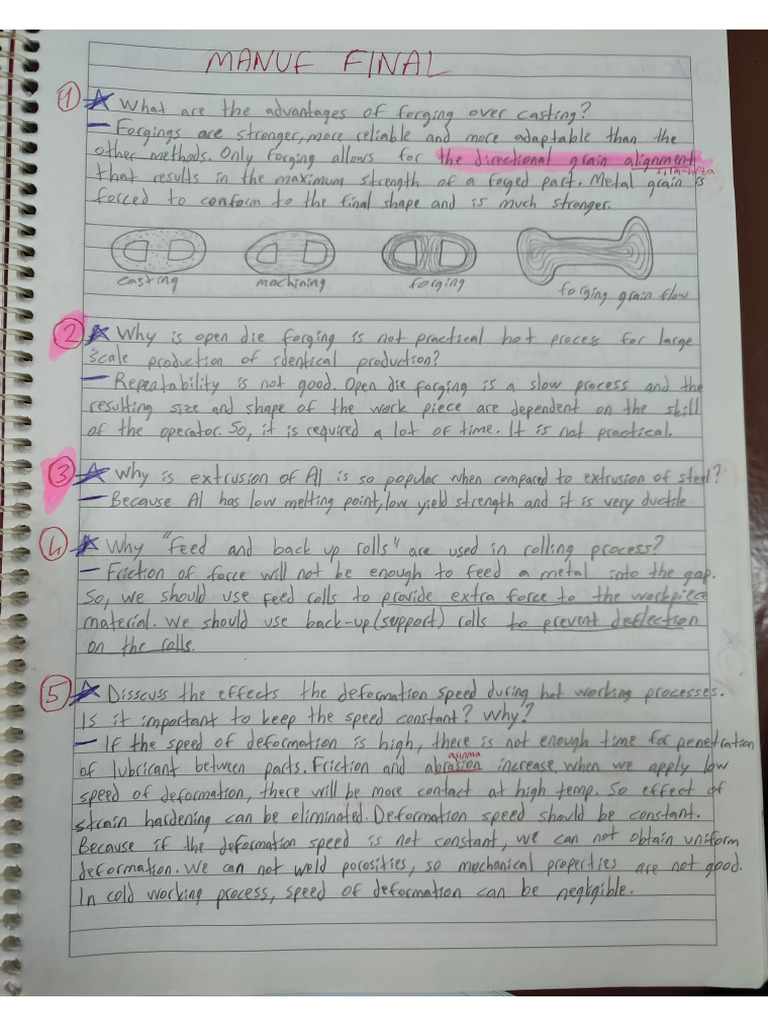 MANUF FINAL
1 What are the advantages of forging over casting?
– Forgings are stronger, more reliable and more adaptable than the
other methods. Only forging allows for the directional grain alignment
sıra-hiza
that results in the maximum strength of a foged part. Metal grain is
forced to conform to the final shape and is much stronger.
casting machining forging forging grain flow
2 Why is open die forging is not practical hot process for large
scale production of identical production?
– Repeatability is not good. Open die forging is a slow process and the
resulting size and shape of the work piece are dependent on the skill
of the operator. So, it is required a lot of time. It is not practical.
3 Why is extrusion of Al is so popular when compared to extrusion of steel?
– Because Al has low melting point, low yield strength and it is very ductile
4 Why "feed and back up rolls" are used in rolling process?
– Friction of force will not be enough to feed a metal into the gap.
So, we should use feed rolls to provide extra force to the workpiece
material. We should use back-up (support) rolls to prevent deflection
on the rolls.
5 Disscuss the effects the deformation speed during hot working processes.
Is it important to keep the speed constant? Why?
– If the speed of deformation is high, there is not enough time for penetration
aşınma
of lubricant between parts. Friction and abrasion increase. When we apply low
speed of deformation, there will be more contact at high temp. So effect of
strain hardening can be eliminated. Deformation speed should be constant.
Because if the deformation speed is not constant, we can not obtain uniform
deformation. We can not weld porosities, so mechanical properties are not good.
In cold working process, speed of deformation can be neglıgible.